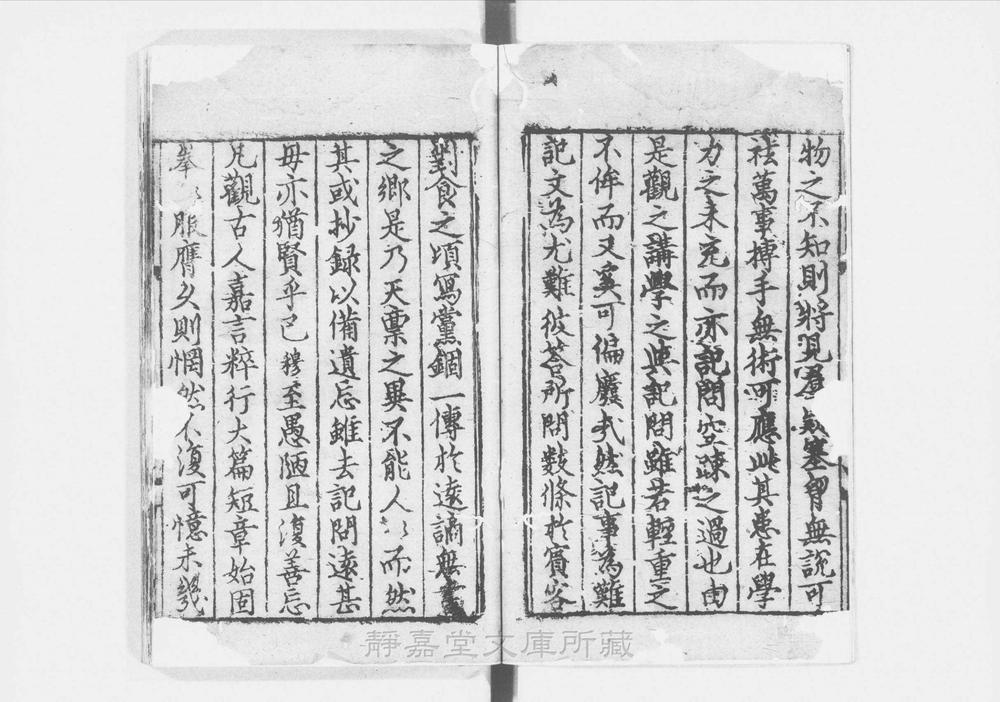 物之不知則將混羣疑塞胷無說可
祛萬事搏手無術可應此其患在學
力之未充而亦記問空踈之過也由
是觀之講學之與記問雖若輕重之
不侔而又奚可偏廢我然記事為難
記文為尤難彼荅所問數條於賓客
對食之頃寫黨錮一傳於遠謫無書
之鄉是乃天禀之異不能人人而然
其或抄録以備遺忘雖去記問遠甚
毋亦猶賢乎已穆至愚陋且復善忘
凡觀古人嘉言粹行大篇短章始固
拳 服膺久則惘然不復可憶未幾
靜嘉堂文庫所藏